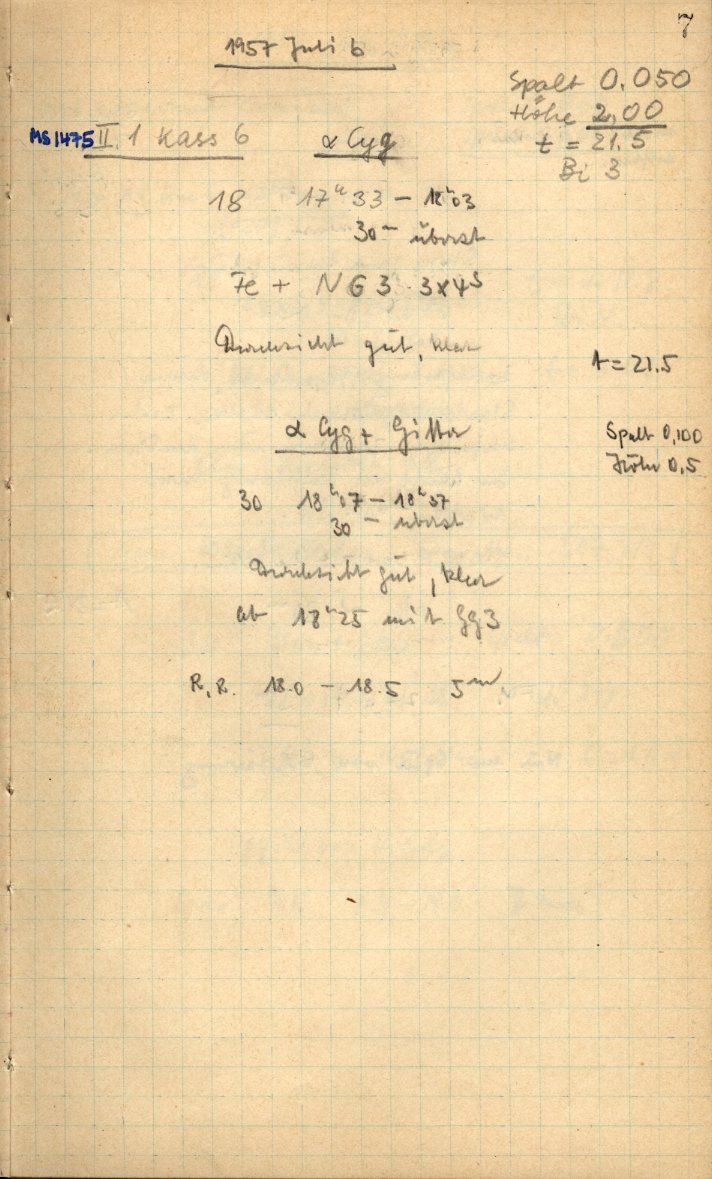 7
1957 Juli 6
Spalt 0.050
Höhe 2,00
t = 21.5
Bi 3
MS1475 II, 1 Kass 6 α Cyg
18 17ʰ33 – 18ʰ03
30ᵐ überst
Fe + NG3 3x4ˢ
Durchsicht gut, klar
t = 21.5
α Cyg + Gitter
Spalt 0,100
Höhe 0,5
30 18ʰ07 – 18ʰ37
30ᵐ überst
Durchsicht gut, klar
ab 18ʰ25 mit Gg3
R.R. 18.0 – 18.5 5ᵐ